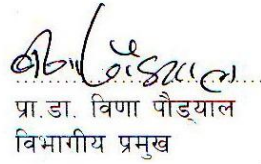 प्रा.डा. विणा पौड्याल
विभागीय प्रमुख